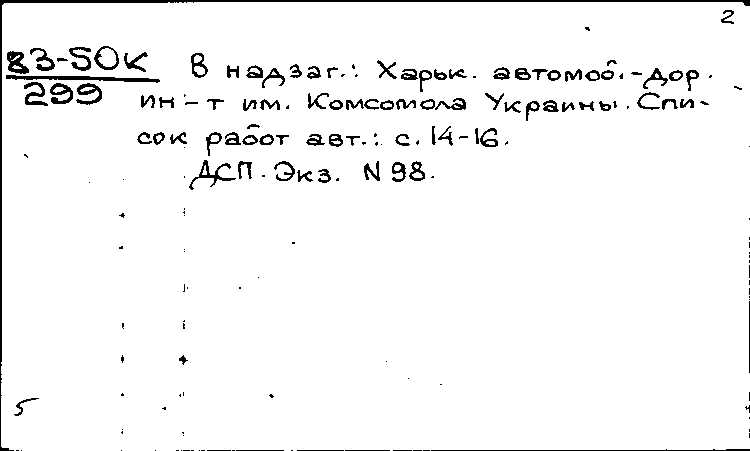 2
83-5OK
299
В надзаг.: Харьк. автомоб.-дор.
ин-т им. Комсомола Украины. Спи-
сок работ авт.: с. 14-16.
ДСП. Экз. N 98.
5